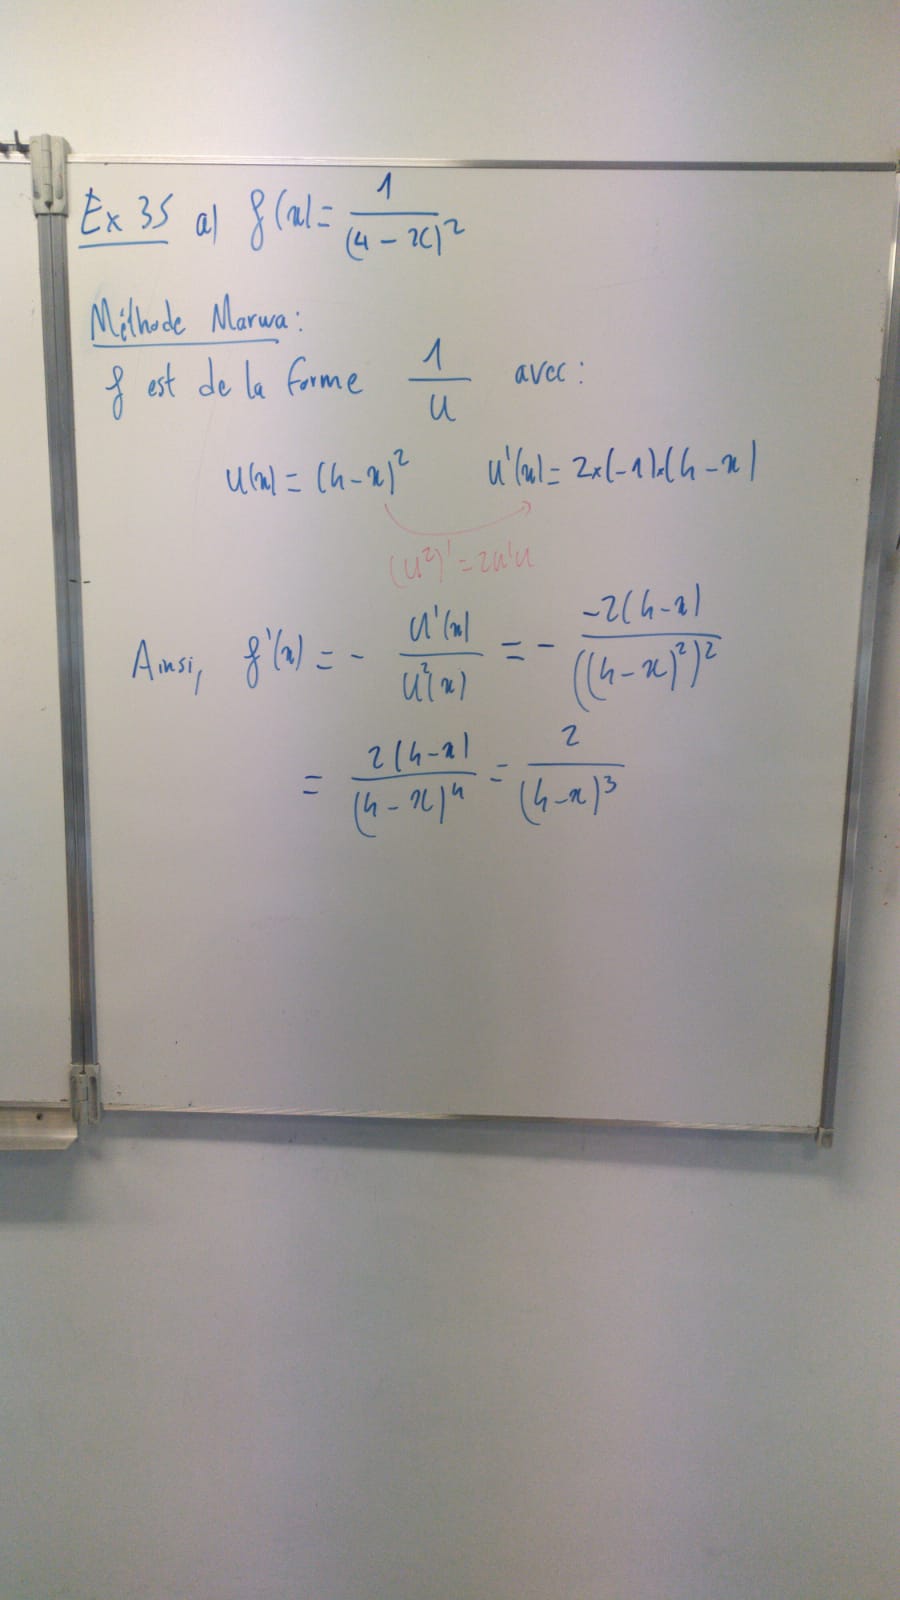 Ex 35 a) f(x) = 1/(4 - x)²
Méthode Marwa :
f est de la forme 1/u avec :
u(x) = (4 - x)² u'(x) = 2×(-1)×(4 - x)
(u²)' = 2u'u
Ainsi, f'(x) = - u'(x)/u²(x) = - -2(4 - x)/((4 - x)²)²
= 2(4 - x)/(4 - x)⁴ = 2/(4 - x)³